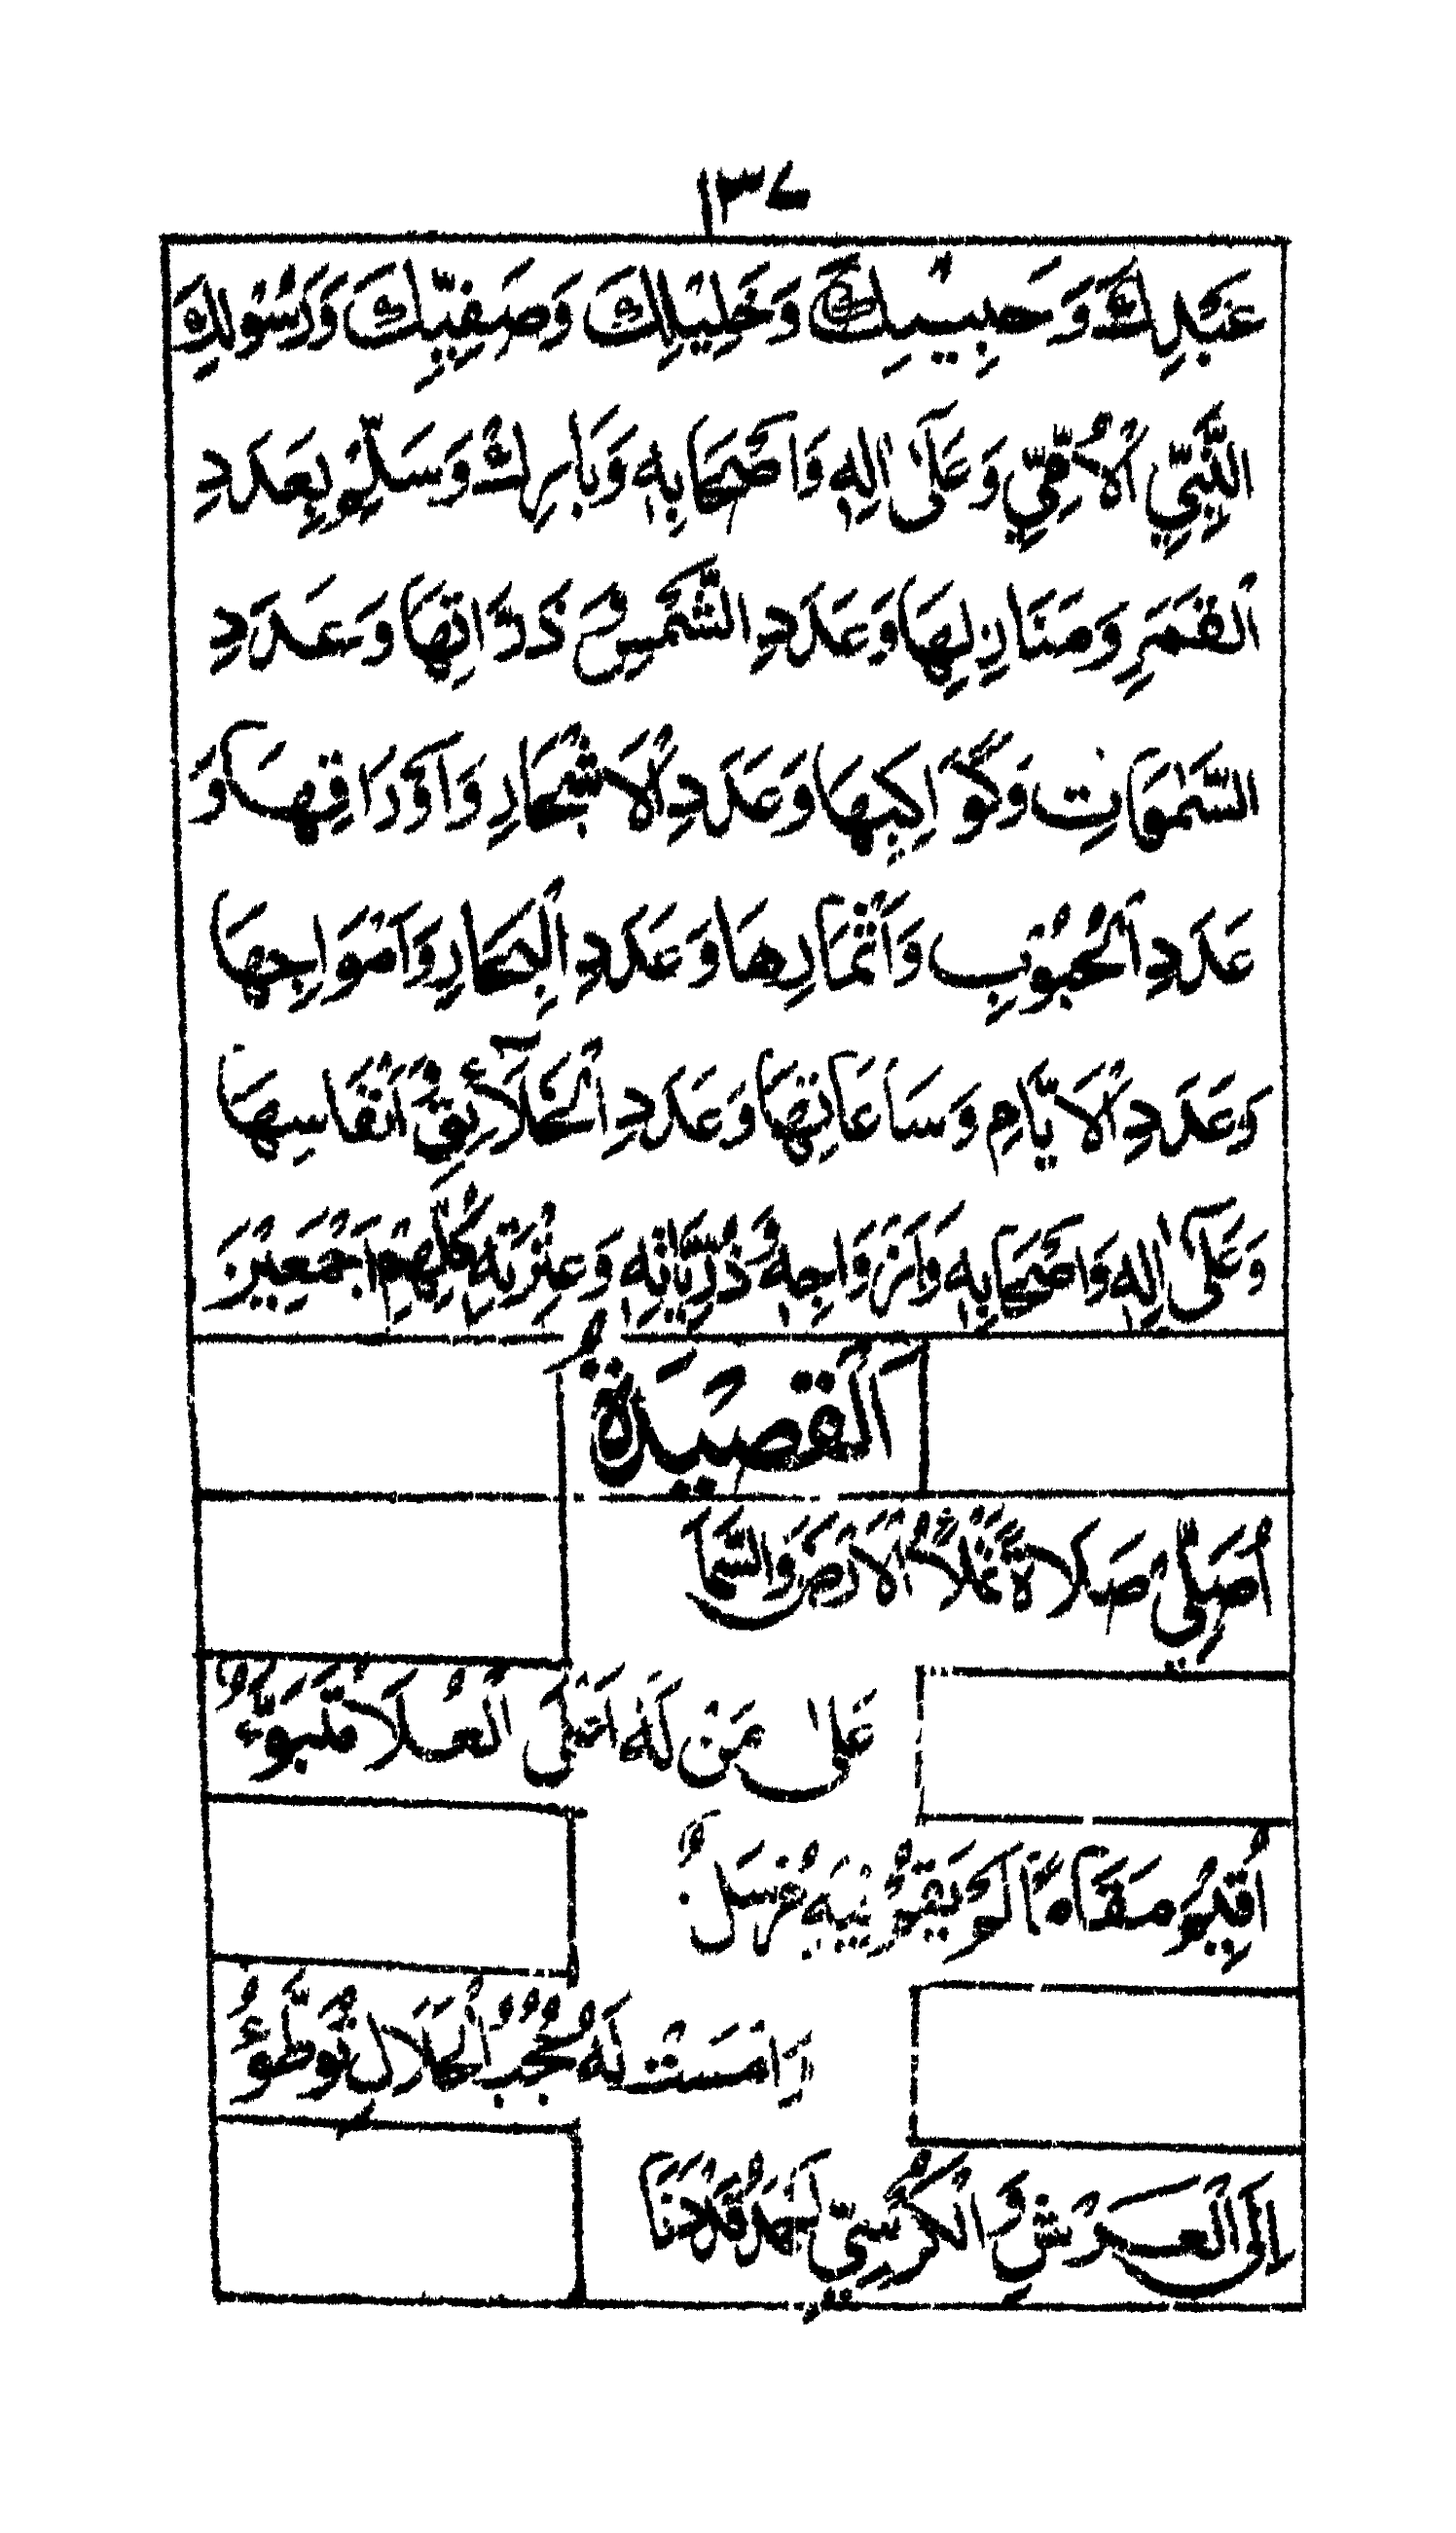 ١٣٧
عَبْدِكَ وَحَبِيْبِكَ وَخَلِيْلِكَ وَصَفِيِّكَ وَرَسُوْلِكَ
النَّبِيِّ الْاُمِّيِّ وَعَلٰى اٰلِهٖ وَاَصْحَابِهٖ وَبَارِكْ وَسَلِّمْ بِعَدَدِ
الْقَمَرِ وَمَنَازِلِهَا وَعَدَدِ الشَّمْسِ وَذَرَّاتِهَا وَعَدَدِ
السَّمٰوَاتِ وَكَوَاكِبِهَا وَعَدَدِ الْاَشْجَارِ وَاَوْرَاقِهَا وَ
عَدَدِ الْحُبُوْبِ وَاَثْمَارِهَا وَعَدَدِ الْبِحَارِ وَاَمْوَاجِهَا
وَعَدَدِ الْاَيَّامِ وَسَاعَاتِهَا وَعَدَدِ الْخَلَآئِقِ وَاَنْفَاسِهَا
وَعَلٰى اٰلِهٖ وَاَصْحَابِهٖ وَاَزْوَاجِهٖ وَذُرِّيَّاتِهٖ وَعِتْرَتِهٖ كُلِّهِمْ اَجْمَعِيْنَ
اَلْقَصِيْدَةُ
اُصَلِّيْ صَلَاةً تَمْلَأُ الْاَرْضَ وَالسَّمَا
عَلٰى مَنْ لَهٗ اَعْلَى الْعُلَا مُتَبَوَّءُ
اُقِيْمَ مَقَامًا لَمْ يَقُمْ فِيْهِ مُرْسَلٌ
وَاَمْسَتْ لَهٗ حُجُبُ الْجَلَالِ تُوَطَّؤُ
اِلَى الْعَرْشِ وَالْكُرْسِيِّ اَحْمَدُ قَدْ دَنَا